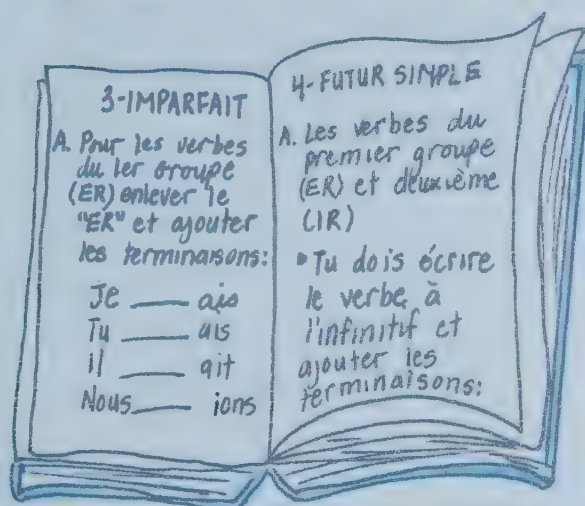 3-IMPARFAIT
A. Pour les verbes
du 1er groupe
(ER) enlever le
"ER" et ajouter
les terminaisons:
Je ____ ais
Tu ____ ais
il ____ ait
Nous ____ ions
4-FUTUR SIMPLE
A. Les verbes du
premier groupe
(ER) et deuxième
(IR)
• Tu dois écrire
le verbe à
l'infinitif et
ajouter les
terminaisons: